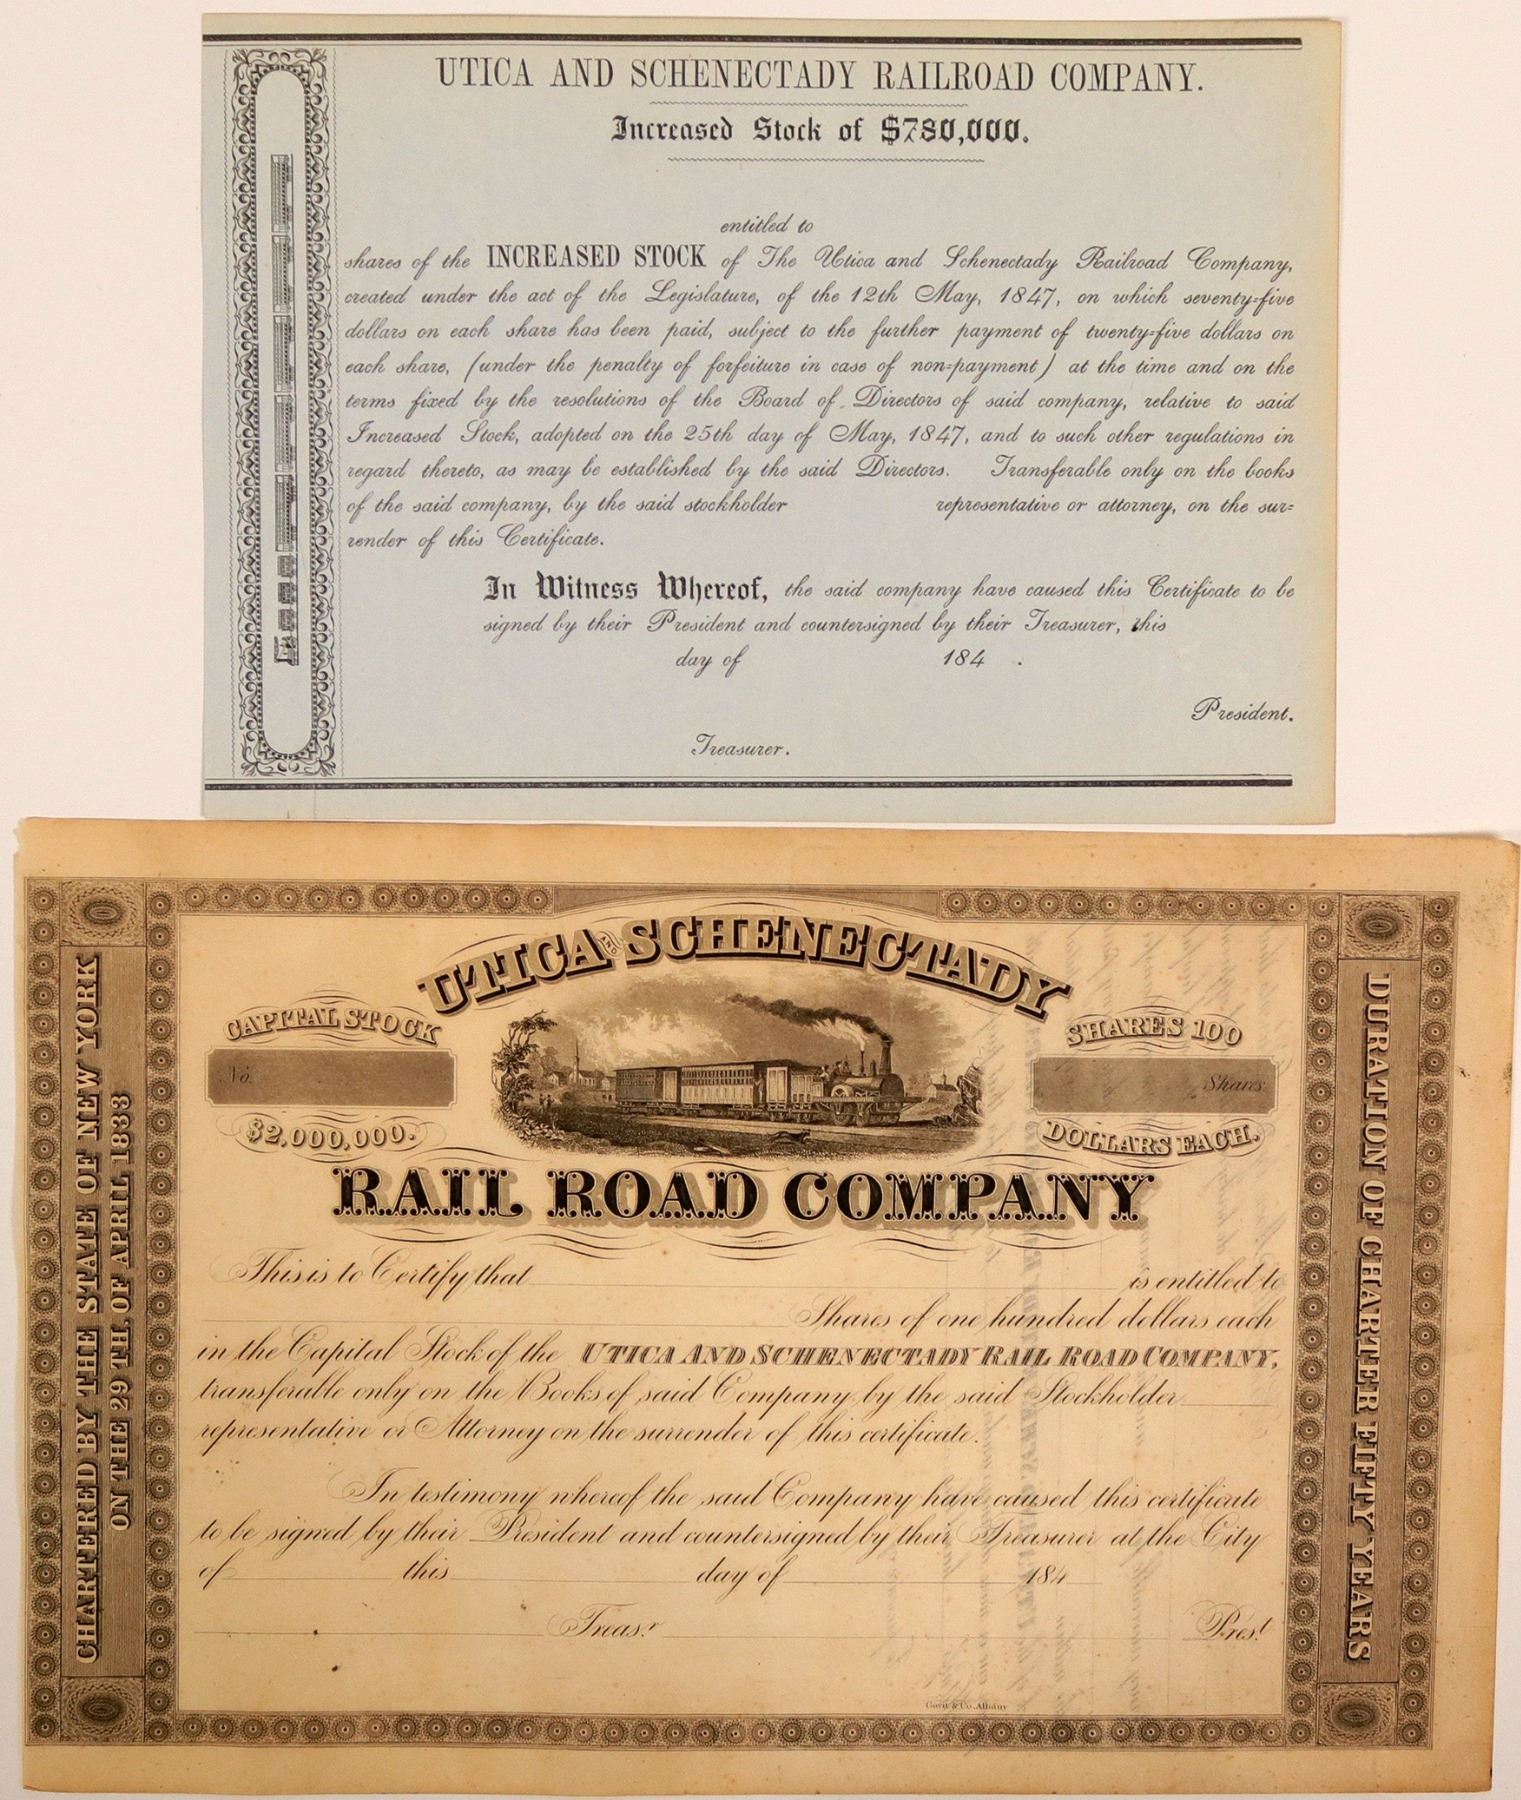 UTICA AND SCHENECTADY RAILROAD COMPANY.
Increased Stock of $780,000.
entitled to
shares of the INCREASED STOCK of The Utica and Schenectady Railroad Company,
created under the act of the Legislature, of the 12th May, 1847, on which seventy=five
dollars on each share has been paid, subject to the further payment of twenty=five dollars on
each share, (under the penalty of forfeiture in case of non=payment) at the time and on the
terms fixed by the resolutions of the Board of Directors of said company, relative to said
Increased Stock, adopted on the 25th day of May, 1847, and to such other regulations in
regard thereto, as may be established by the said Directors. Transferable only on the books
of the said company, by the said stockholder representative or attorney, on the sur=
render of this Certificate.
In Witness Whereof, the said company have caused this Certificate to be
signed by their President and countersigned by their Treasurer, this
day of 184 .
President.
Treasurer.
CHARTERED BY THE STATE OF NEW YORK
ON THE 29TH. OF APRIL 1833
UTICA AND SCHENECTADY
CAPITAL STOCK
No.
$2,000,000.
SHARES 100
Shares
DOLLARS EACH.
RAIL ROAD COMPANY
This is to Certify that is entitled to
Shares of one hundred dollars each
in the Capital Stock of the UTICA AND SCHENECTADY RAIL ROAD COMPANY,
transferable only on the Books of said Company by the said Stockholder
representative or Attorney on the surrender of this certificate.
In testimony whereof the said Company have caused this certificate
to be signed by their President and countersigned by their Treasurer at the City
of this day of 184
Treasr. Prest.
& Co. Albany
DURATION OF CHARTER FIFTY YEARS